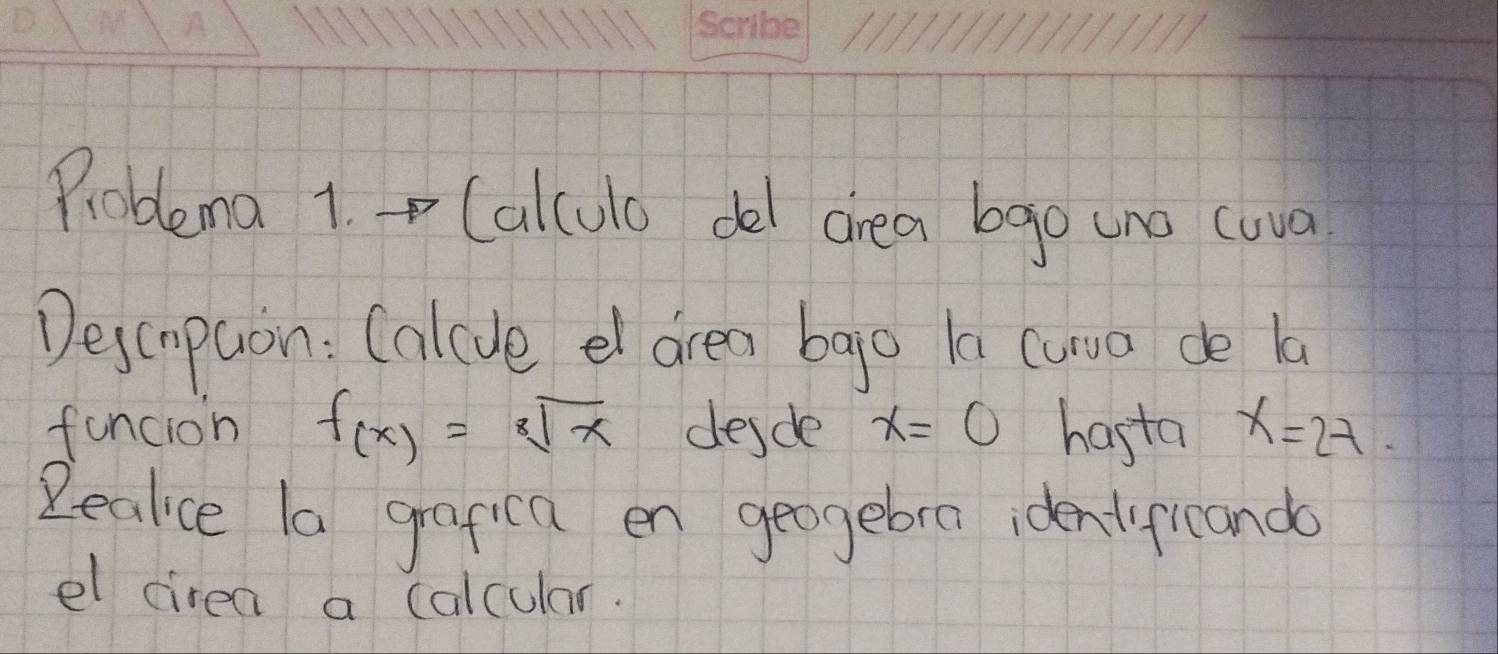 D M A Scribe
Problema 1. → Calculo del área bajo una cuva.
Descripción: Calcule el área bajo la curva de la
función f(x) = ∛x desde x = 0 hasta x = 27.
Realice la grafica en geogebra identificando
el área a calcular.